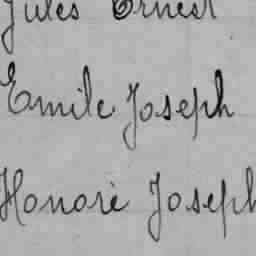 Jules Ernest
Emile Joseph
Honoré Joseph